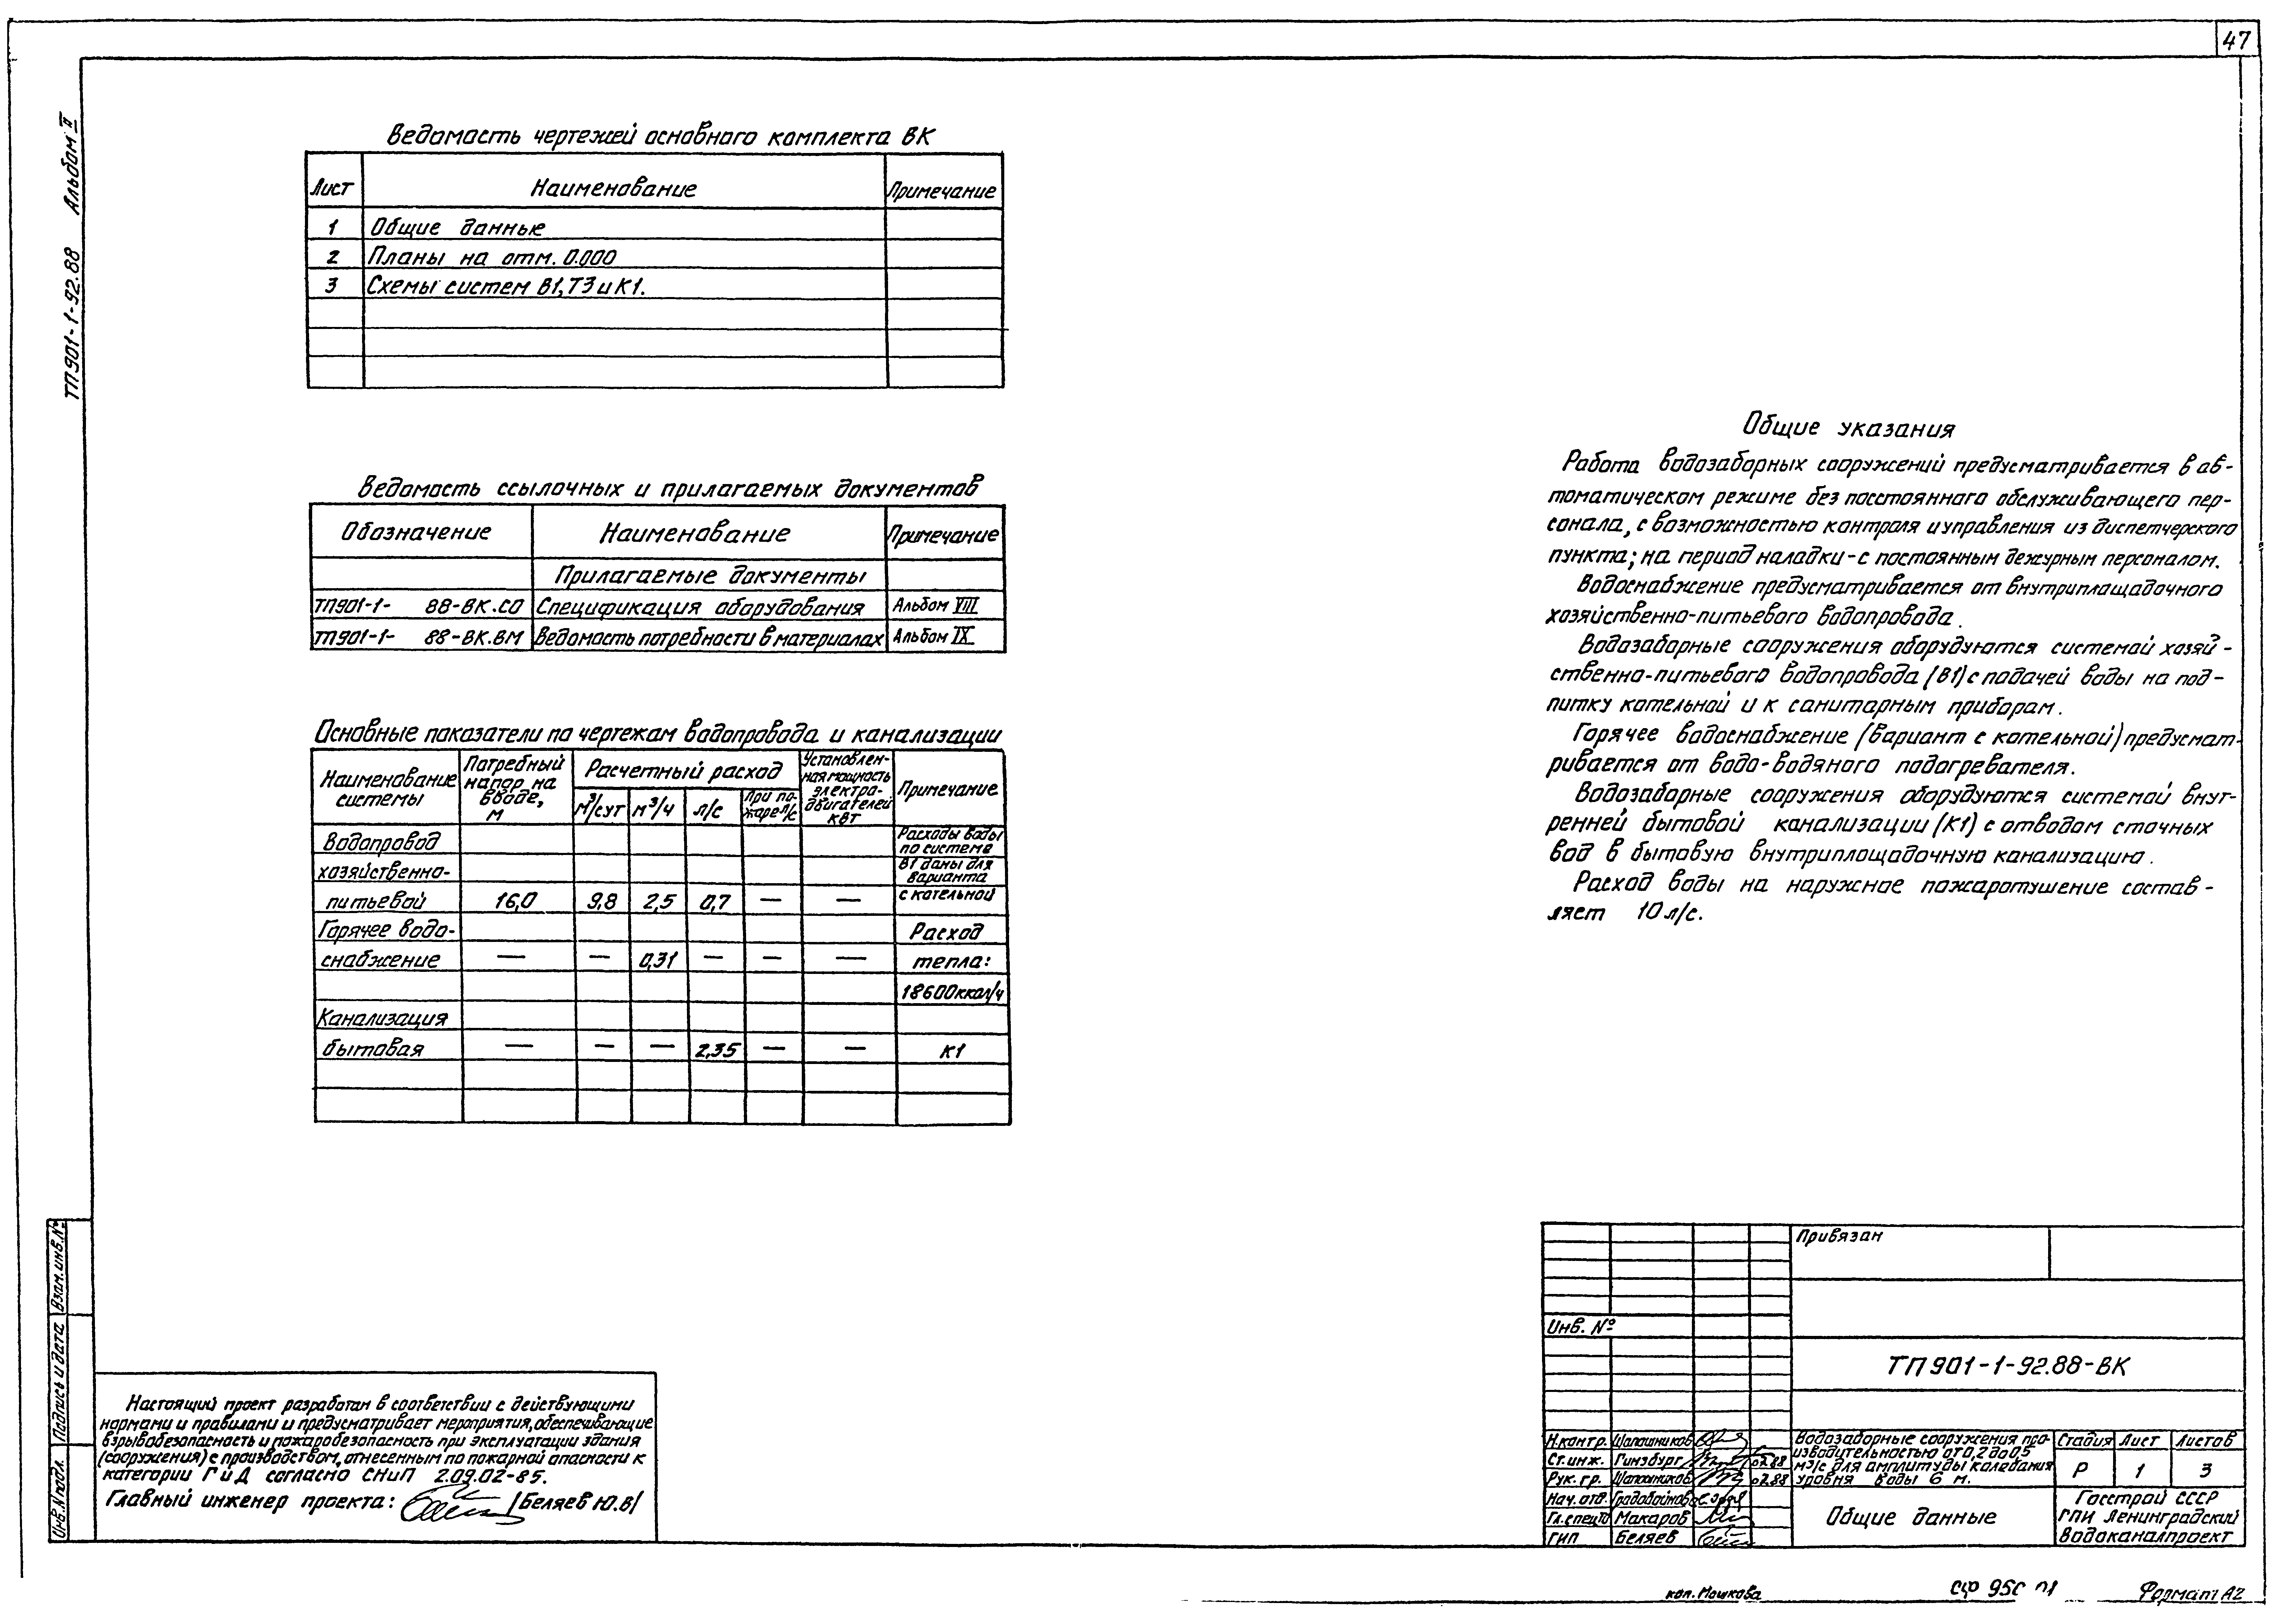 47
ТП901-1-92.88 Альбом II
Ведомость чертежей основного комплекта ВК
Лист Наименование Примечание
1 Общие данные
2 Планы на отм. 0.000
3 Схемы систем В1, Т3 и К1.
Ведомость ссылочных и прилагаемых документов
Обозначение Наименование Примечание
Прилагаемые документы
ТП901-1- 88-ВК.СО Спецификация оборудования Альбом VIII
ТП901-1- 88-ВК.ВМ Ведомость потребности в материалах Альбом IX
Основные показатели по чертежам водопровода и канализации
Наименование системы Потребный напор на вводе, м Расчетный расход Установленная мощность электродвигателей квт Примечание
м³/сут м³/ч л/с При пожаре л/с
Водопровод Расходы воды по система
хозяйственно- В1 даны для варианта
питьевой 16,0 9,8 2,5 0,7 — — с котельной
Горячее водо- Расход
снабжение — — 0,31 — — — тепла:
18600 ккал/ч
Канализация
бытовая — — — 2,35 — — К1
Общие указания
Работа водозаборных сооружений предусматривается в ав-
томатическом режиме без посстоянного обслуживающего пер-
сонала, с возможностью контроля и управления из диспетчерского
пункта; на период наладки - с постоянным дежурным персоналом.
Водоснабжение предусматривается от внутриплащадочного
хозяйственно-питьевого водопровода.
Водозаборные сооружения оборудуются системой хозяй-
ственно-питьевого водопровода (В1) с подачей воды на под-
питку котельной и к санитарным приборам.
Горячее водоснабжение (вариант с котельной) предусмат-
ривается от водо-водяного подогревателя.
Водозаборные сооружения оборудуются системой внут-
ренней бытовой канализации (К1) с отводом сточных
вод в бытовую внутриплощадочную канализацию.
Расход воды на наружное пожаротушение состав-
ляет 10 л/с.
Взам. инв. №
Подпись и дата
Инв. N подл.
Настоящий проект разработан в соответствии с действующими
нормами и правилами и предусматривает мероприятия, обеспечивающие
взрывобезопасность и пожаробезопасность при эксплуатации здания
(сооружения) с производством, отнесенным по пожарной опасности к
категории Г и Д согласно СНиП 2.09.02-85.
Главный инженер проекта: /Беляев Ю.В/
Привязан
Инв. №
ТП 901-1-92.88-ВК
Н.контр. Шапошников
Ст.инж. Гинзбург 02.88
Рук. гр. Шапошников 02.88
Нач. отд. Градовойнова
Гл. спец ТО Макаров
ГИП Беляев
Водозаборные сооружения про-
изводительностью от 0,2 до 0,5
м³/с для амплитуды колебания
уровня воды 6 м.
Стадия Лист Листов
Р 1 3
Общие данные
Госстрой СССР
ГПИ Ленинградский
Водоканалпроект
коп. Мошкова
Формат А2